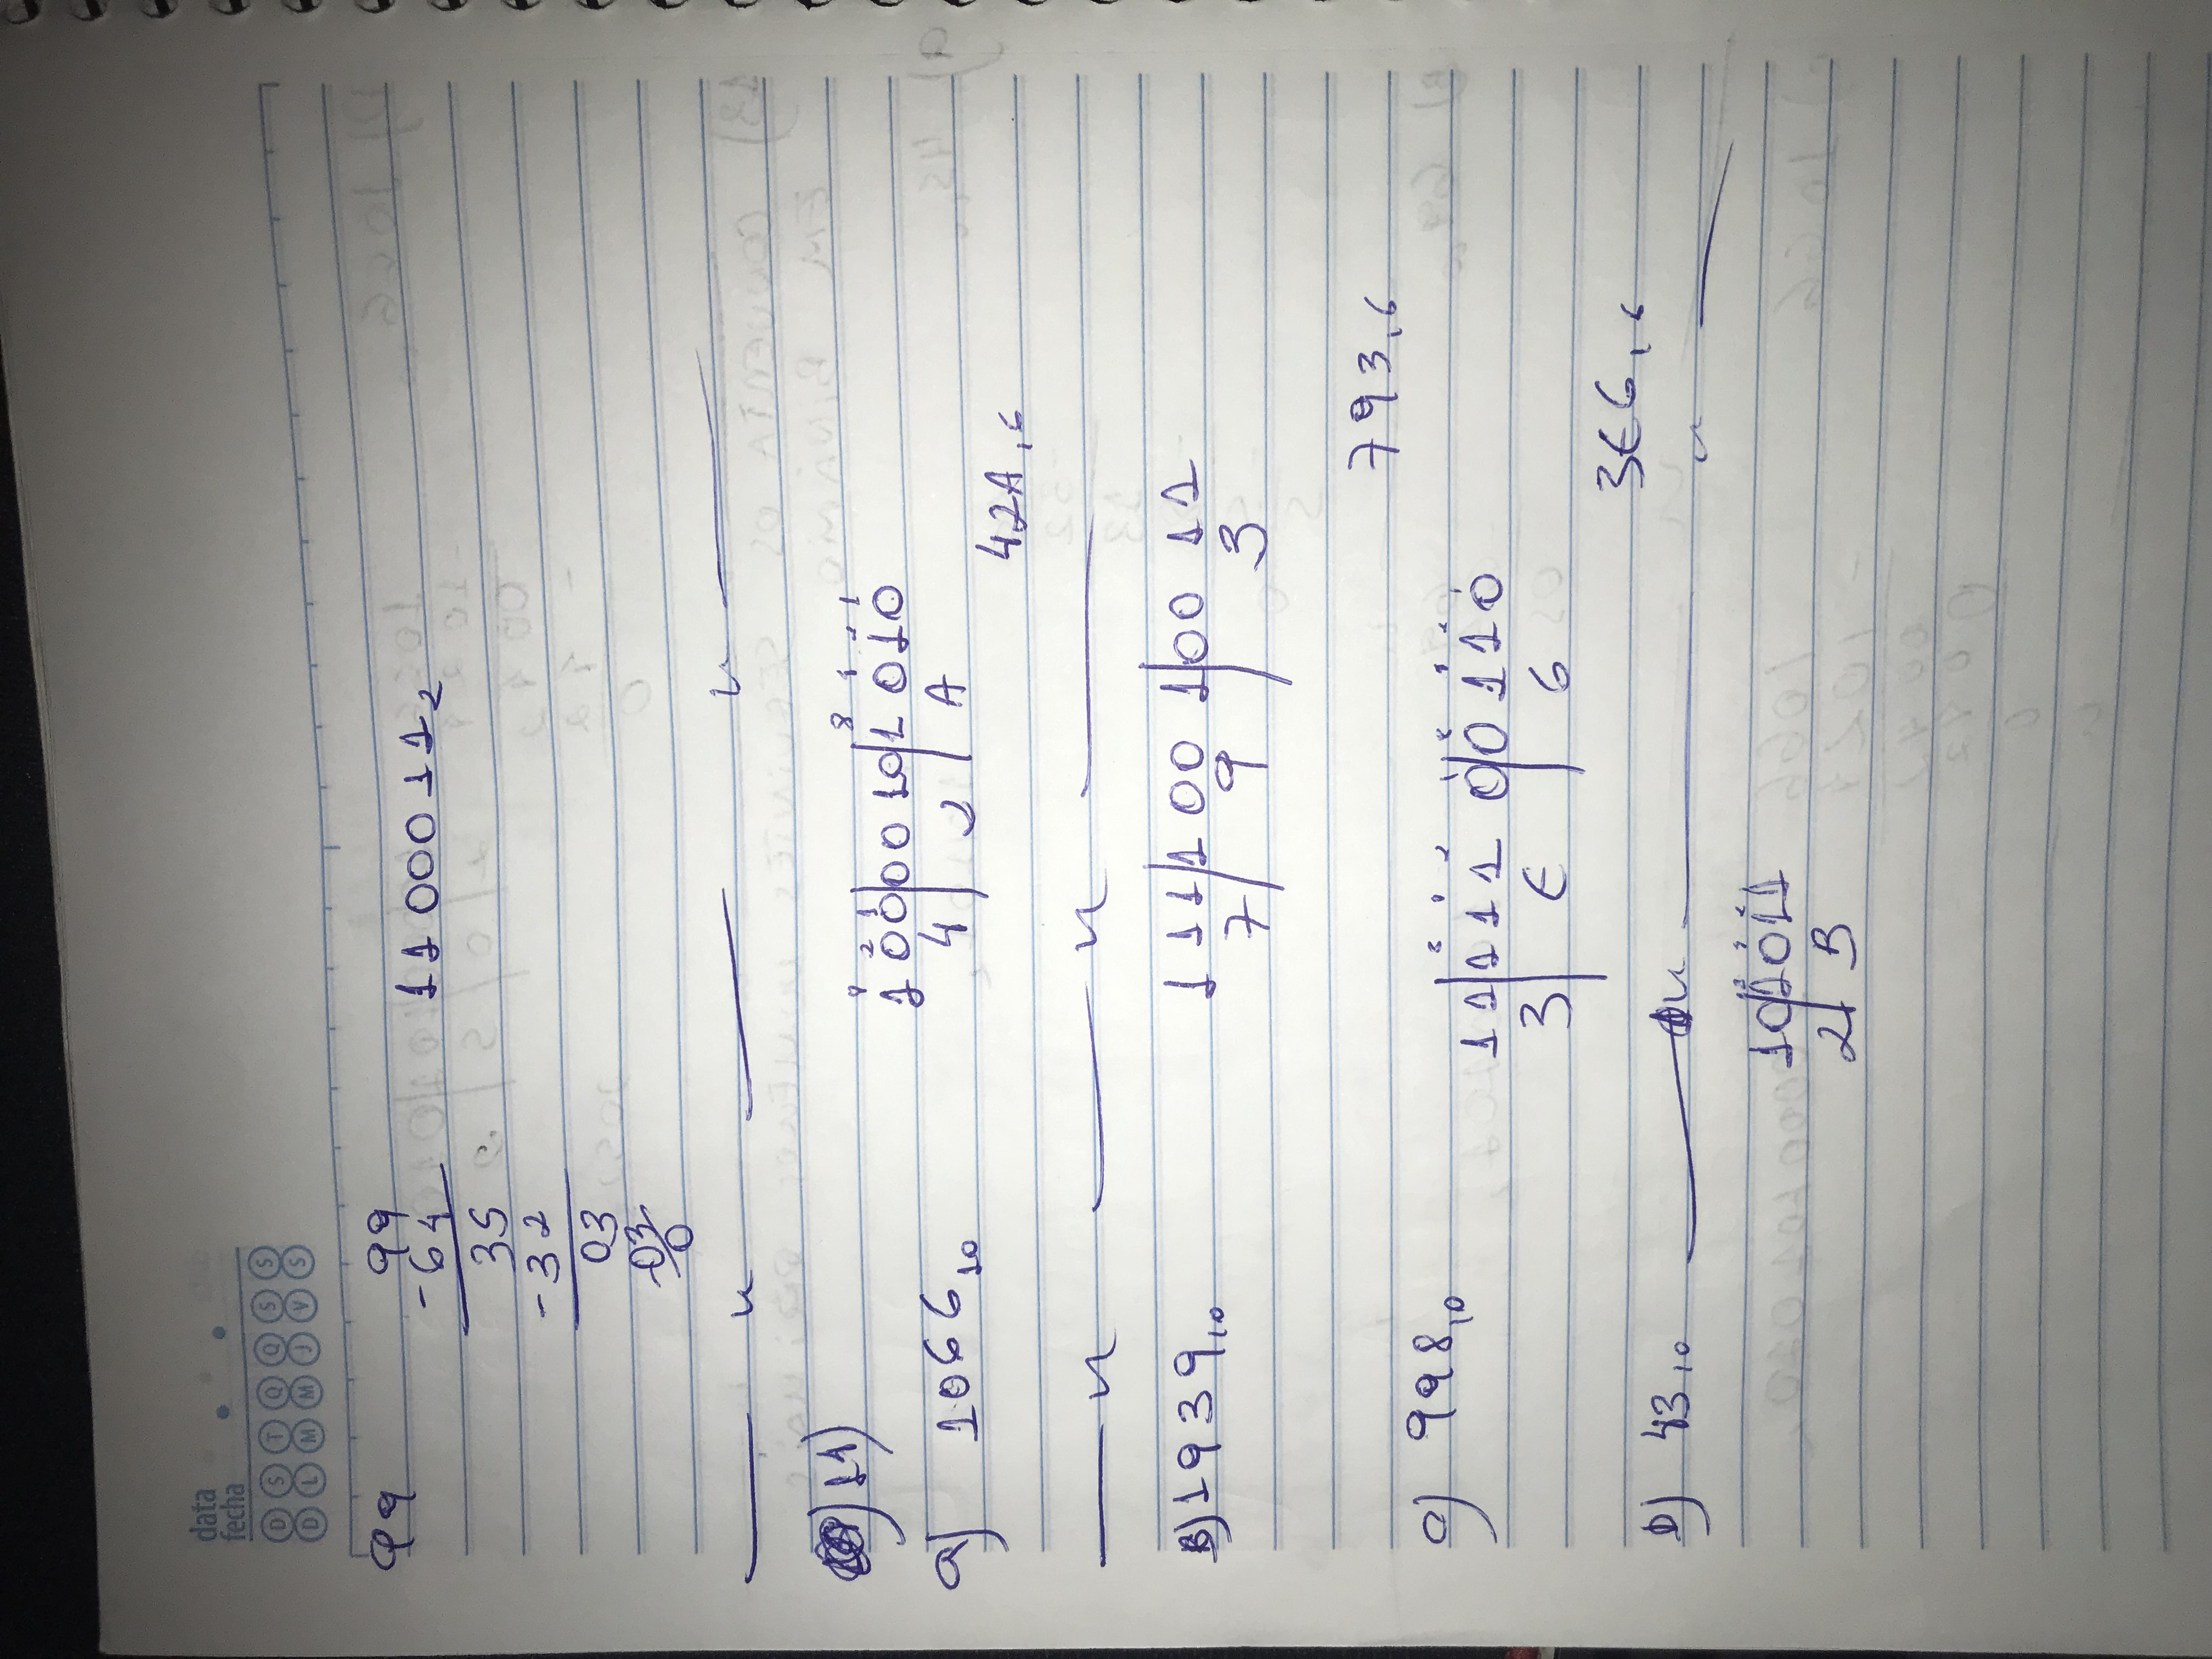 data
fecha
D S T Q Q S S
D L M M J V S
99 99
-64 1100011₂
35
-32
03
-03
0
11)
8 4 2 1
100|0010|1010
a) 1066₁₀ 4 | 2 | A
42A₁₆
B) 1939₁₀ 111|1001|0011
7 | 9 | 3
793₁₆
C) 998₁₀
11|1110|0110
3 | E | 6
3E6₁₆
D) 43₁₀
10|1011
2 | B